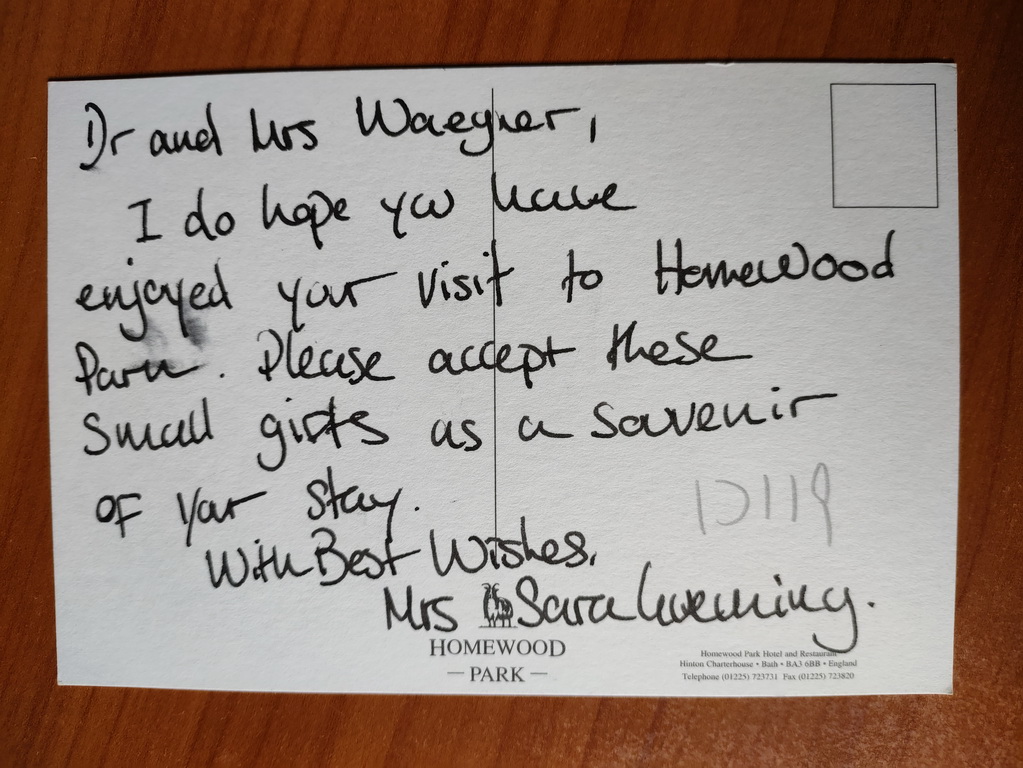 Dr and Mrs Waegner,
I do hope you have
enjoyed your visit to Homewood
Park. Please accept these
Small gifts as a souvenir
of your stay.
With Best Wishes,
Mrs Sara
HOMEWOOD
— PARK —
Homewood Park Hotel and Restaurant
Hinton Charterhouse • Bath • BA3 6BB • England
Telephone (01225) 723731 Fax (01225) 723820